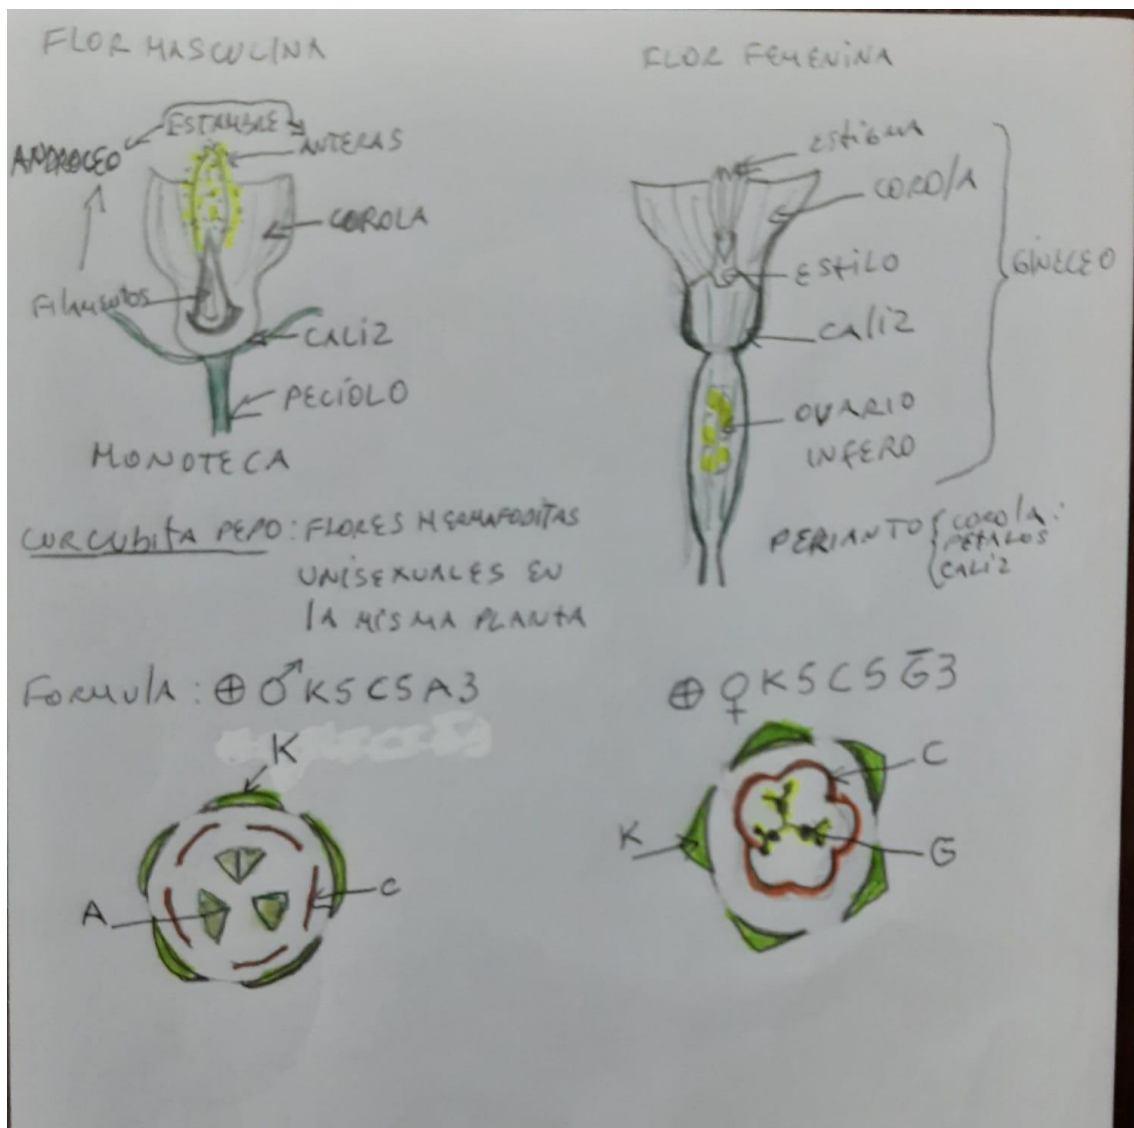 FLOR MASCULINA
ESTAMBRE
ANDROCEO
ANTERAS
COROLA
Filamentos
CALIZ
PECÍOLO
MONOTECA
FLOR FEMENINA
Estigma
COROlA
ESTILO
CAliZ
OVARIO
INFERO
GINECEO
PERIANTO { COROlA:
PÉTALOS
CALIZ
CURCUBITA PEPO: FLORES HERMAFODITAS
UNISEXUALES EN
lA MISMA PLANTA
FORMUlA: ⊕ ♂ K5 C5 A3
K
C
A
⊕ ♀ K5 C5 G̅3
C
K
G